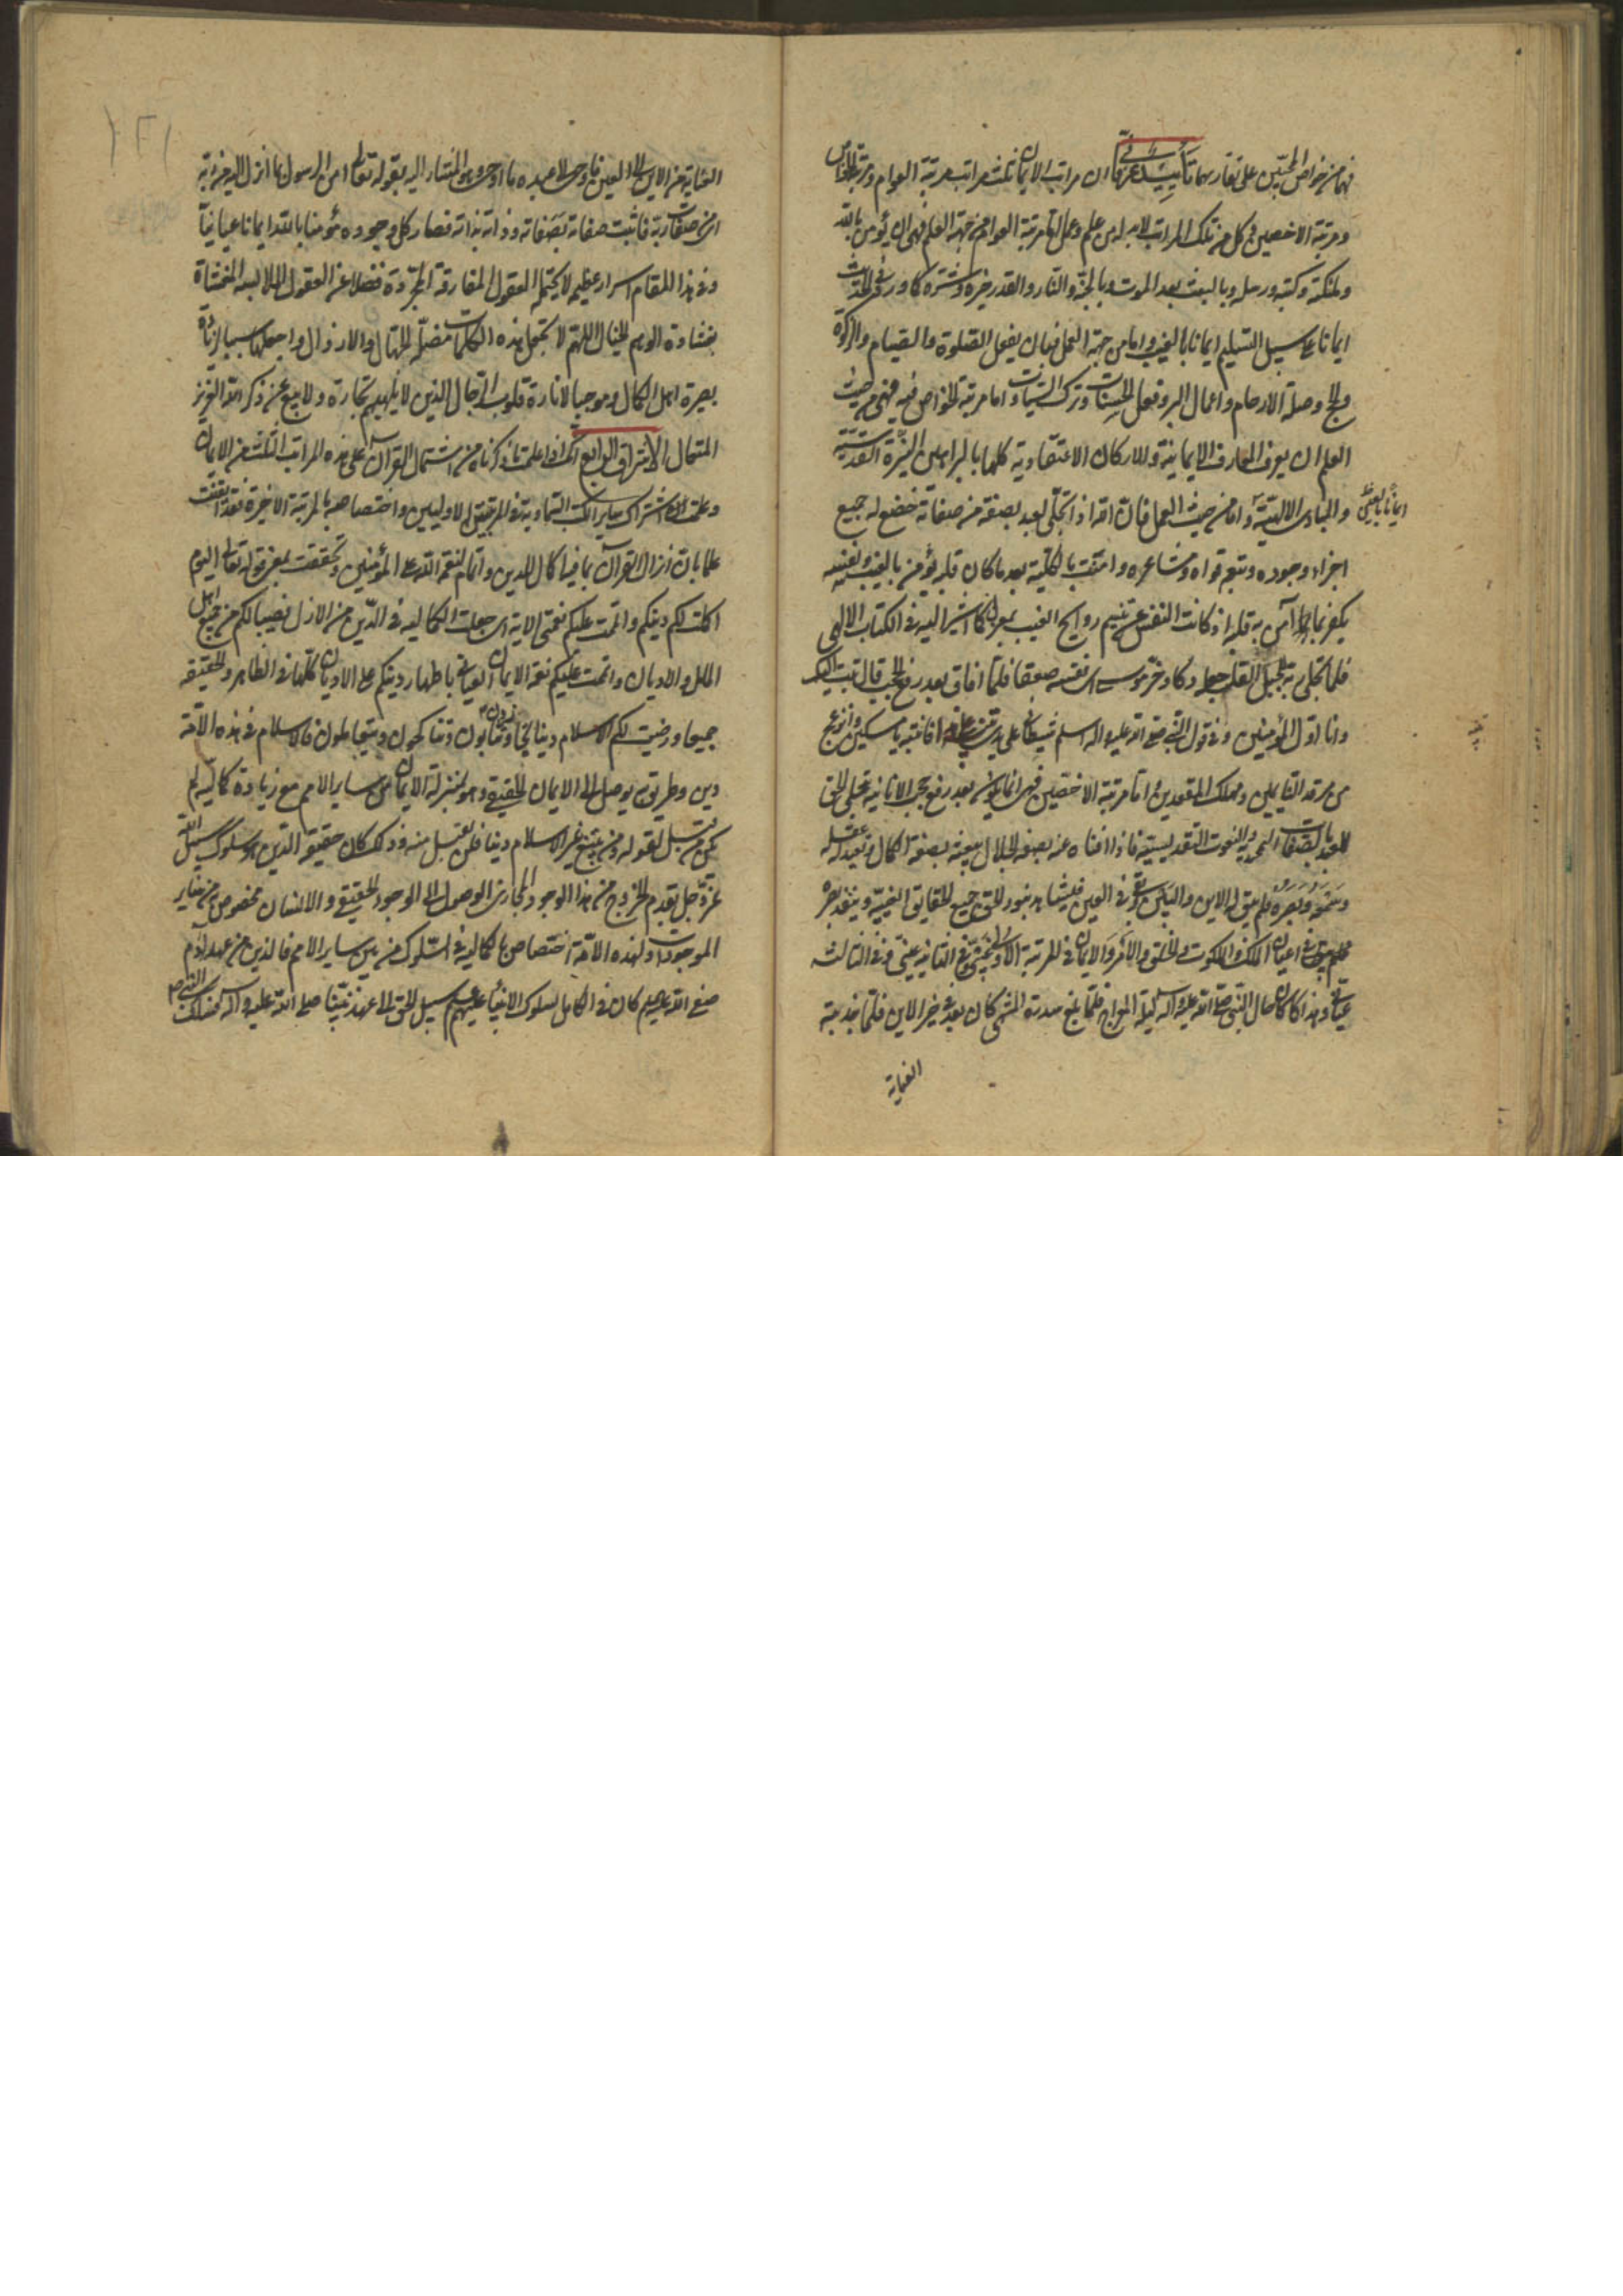 فهما من خواص المحبين على تفاريهما تأييد عرفانى ان مراتب الايمان ثلث مراتب مرتبة العوام ومرتبة الخواص
ومرتبة الاخصين وكل من تلك المراتب لابد له من علم وعمل اما مرتبة العوام من جهة العلم فهى ان يؤمن بالله
وملئكته وكتبه ورسله وبالبعث بعد الموت وبالجنة والنار والقدر خيره وشره كما ورد فى الحديث
ايمانا على سبيل التسليم ايمانا بالغيب واما من جهة العمل فبان يفعل الصلوة والصيام والزكوة
والحج وصلة الارحام واعمال البر وفعل الحسنات وترك السيئات واما مرتبة الخواص فيه فهى من حيث
العلم ان يعرف المعارف الايمانية والاركان الاعتقادية كلها بالبراهين النيرة القدسية
والمبادى الالهية واما من حيث العمل فبان الله اذا تجلى لعبد بصفة من صفاته خضع له جميع
ايمانا بالغيب
اجزاء وجوده وتتبع قواه ومشاعره وامنت بالكلية بعد ما كان قلبه يؤمن بالغيب ونفسه
يكفر بما آمن به قلبه اذ كانت النفس عن تنسيم روايح الغيب بمعزل كما اشير اليه فى الكتاب الالهى
فلما تجلى ربه للجبل القلب جعله دكا وخر موسى النفس صعقا فلما افاق بعد رفع الحجب قال تبت اليك
وانا اول المؤمنين وفى قول النبى صلى الله عليه واله اسلم شيطانى على يدى فانتبه يا مسكين وانزعج
من مرقد القايلين ومهلك المقعدين اما مرتبة الاخصين فهى انما يكون بعد رفع حجب الانانية بتجلى الحق
للعبد بالصفات المجردية والنعوت التقديسية فاذا افناه عنه بصفة الجلال يبقيه بصفة الكمال فيعيد له عقله
وسمعه وبصره فلم يبق له الاين والبين وبقى فى العين فيشاهد بنور الحق جميع الحقايق الغيبية وينفذ بصره
فى اعيان الملك والملكوت والخلق والامر والايمان فى المرتبة الاولى غيبى وفى الثانية عينى وفى الثالثة
عيانى وهذا كما كان حال النبى صلى الله عليه واله ليلة المعراج فلما بلغ سدرة المنتهى كان بعد فى خبر الاين فلما جذبته
العناية
العناية من الاين الى العين فاوحى الى عبده ما اوحى وهو المشار اليه بقوله تعالى امن الرسول بما انزل اليه من ربه
اى من صفات ربه فاثبت صفاته بصفاته وذاته بذاته فصار كل وجوده مؤمنا بالله ايمانا عيانيا
وفى هذا المقام اسرار عظيمة لا يحتملها العقول المفارقة المجردة فضلا عن العقول الملابسة المغشاة
بغشاوة الوهم والخيال اللهم لا تجعل هذه الكلمات مضلة للجهال والارذال واجعلها سببا لزيادة
بصيرة اهل الكمال وموجبا لانارة قلوب الرجال الذين لا تلهيهم تجارة ولا بيع عن ذكر الله العزيز
المتعال الاشراق الرابع انك اذا علمت ما ذكرناه من اشتمال القرآن على هذه المراتب الثلث من الايمان
وعلمت اشتراك ساير الكتب السماوية فى المرتبتين الاوليين واختصاصه بالمرتبة الاخيرة فقد ايقنت
علما بان انزال القرآن بما فيه اكمال للدين واتمام لنعم الله على المؤمنين وتحققت بمعرفة قوله تعالى اليوم
اكملت لكم دينكم واتممت عليكم نعمتى الاية اى جعلت الكمالية فى الدين من الازل نصيبا لكم من جميع اهل
الملل والاديان واتممت عليكم نعمة الايمان العيانى باظهار دينكم على الاديان كلها فى الظاهر والحقيقة
جميعا ورضيت لكم الاسلام دينا تجاوزون وتثابون وتناكحون وتتعاملون فالاسلام فى هذه الامة
دين وطريق يوصل الى الايمان الحقيقى وهو بمنزلة الايمان من ساير الامم مع زيادة كمالية لم
يكن من قبل لقوله ومن يبتغ غير الاسلام دينا فلن يقبل منه وذلك كان حقيقة الدين هو سلوك سبيل الله
عز وجل بقدم الخروج من هذا الوجود المجازى للوصول الى الوجود الحقيقى والانسان مخصوص به من ساير
الموجودات ولهذه الامة اختصاص بالكمالية فى السلوك من بين ساير الامم فالدين من عهد آدم
صفى الله عليه السلم كان فى التكامل بسلوك الانبياء عليهم السلم سبيل الحق الى عهد نبينا صلى الله عليه وآله فسلك النبى ص